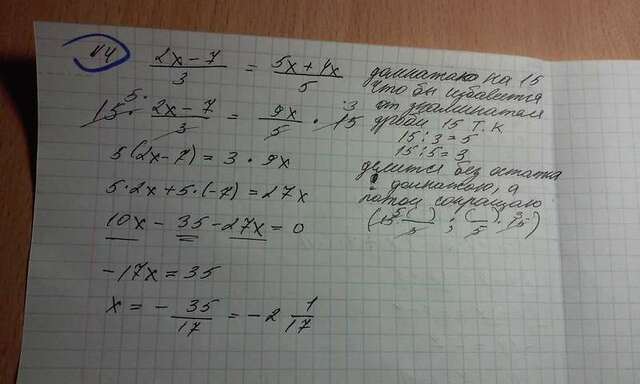 №4
(2x-7)/3 = (5x+4x)/5
15 · (2x-7)/3 = 9x/5 · 15
5 3
5(2x-7) = 3 · 9x
5·2x+5·(-7) = 27x
10x - 35 - 27x = 0
-17x = 35
x = - 35/17 = -2 1/17
домнажаю на 15
что бы избавится
от знаменателя
дроби 15 т.к
15:3=5
15:5=3
делится без остатка
домнажаю, а
потом сокращаю
(15 ( )/3 ; ( )/5 · 15)
5 3